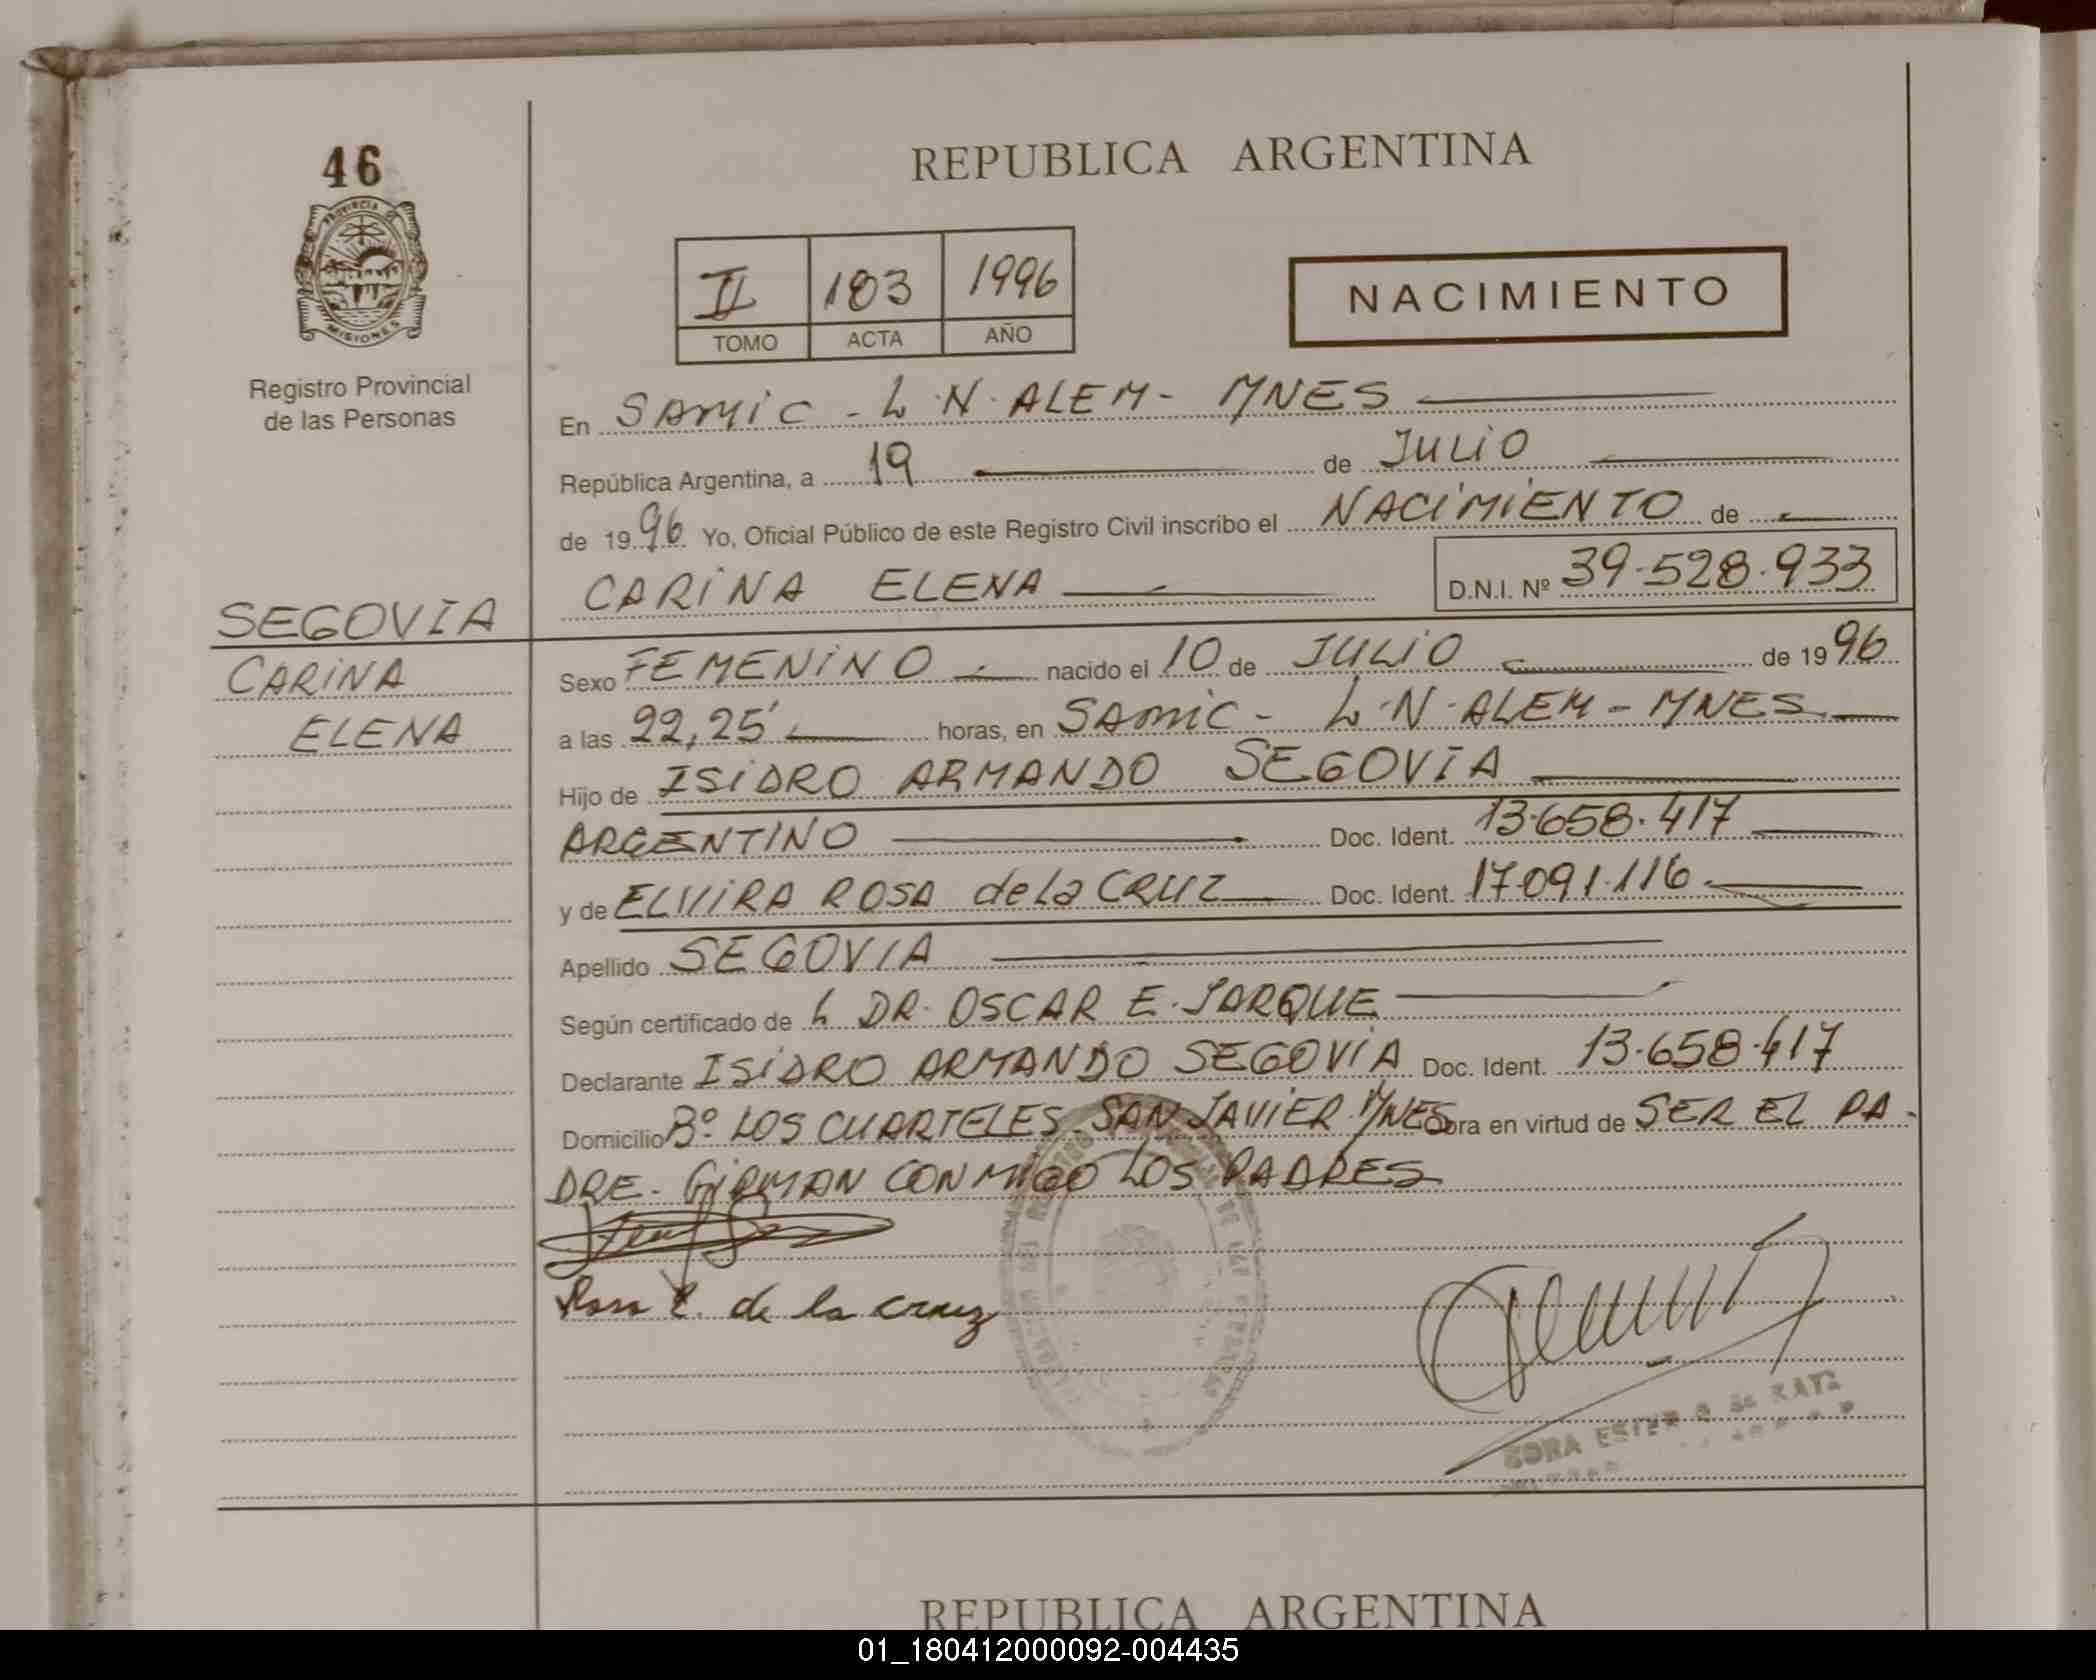 46
PROVINCIA DE
MISIONES
Registro Provincial
de las Personas
REPUBLICA ARGENTINA
II 183 1996
TOMO ACTA AÑO
NACIMIENTO
En SAMIC - L.N. ALEM - MNES
República Argentina, a 19 de JULIO
de 1996 Yo, Oficial Público de este Registro Civil inscribo el NACIMIENTO de
CARINA ELENA D.N.I. Nº 39.528.933
SEGOVIA
CARINA
ELENA
Sexo FEMENINO nacido el 10 de JULIO de 1996
a las 22,25' horas, en SAMIC - L.N. ALEM - MNES
Hijo de ISIDRO ARMANDO SEGOVIA
ARGENTINO Doc. Ident. 13.658.417
y de ELVIRA ROSA de la CRUZ Doc. Ident. 17.091.116
Apellido SEGOVIA
Según certificado de L DR. OSCAR E. JARQUE
Declarante ISIDRO ARMANDO SEGOVIA Doc. Ident. 13.658.417
Domicilio Bº LOS CUARTELES SAN JAVIER MNES Obra en virtud de SER EL PA-
DRE - FIRMAN CONMIGO LOS PADRES
Rosa E. de la cruz
ESTER
KATZ
REPUBLICA ARGENTINA
01_180412000092-004435